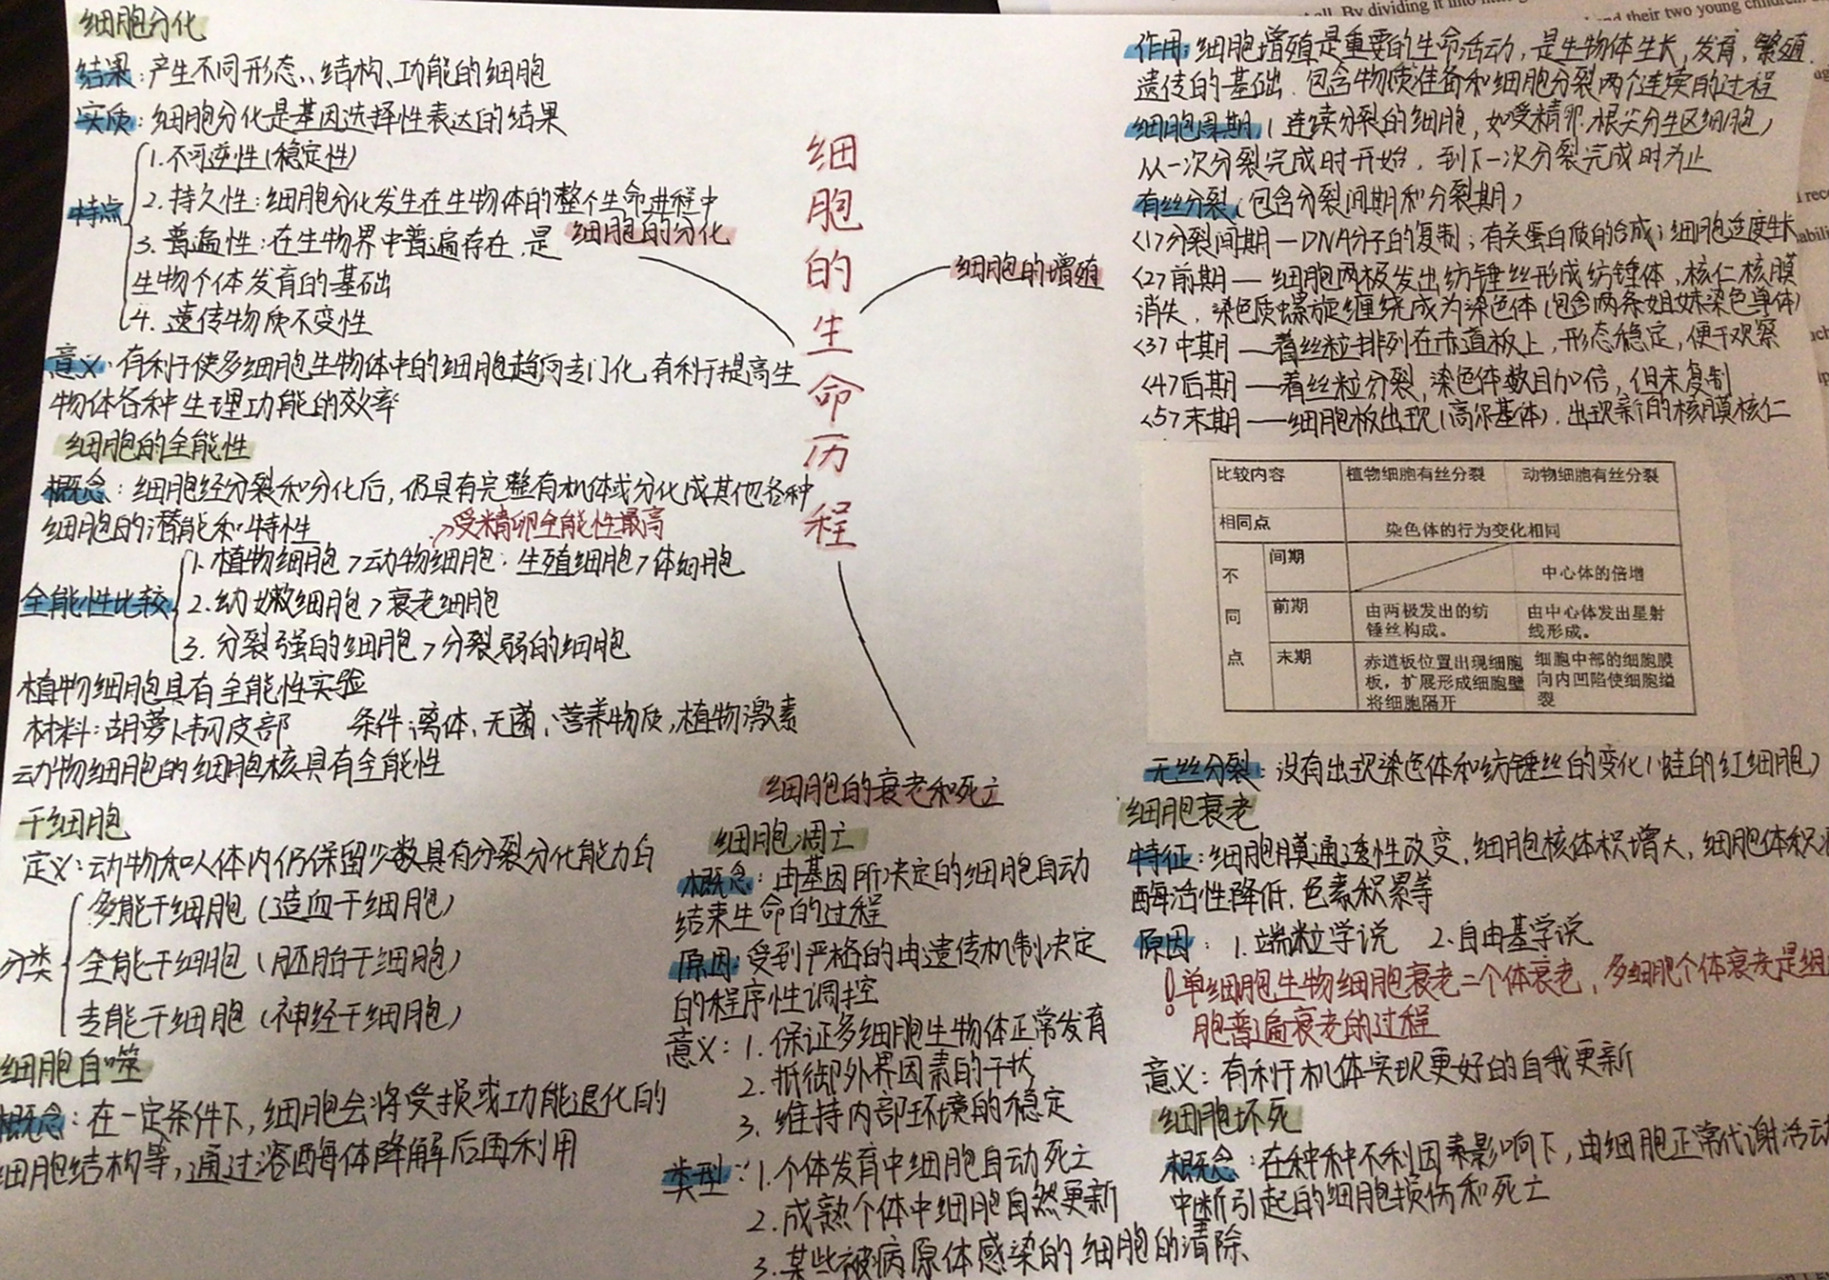 细胞的生命历程
细胞的分化
细胞的增殖
细胞的衰老和死亡
细胞分化
结果：产生不同形态、结构、功能的细胞
实质：细胞分化是基因选择性表达的结果
特点
1.不可逆性(稳定性)
2.持久性：细胞分化发生在生物体的整个生命进程中
3.普遍性：在生物界中普遍存在，是
生物个体发育的基础
4.遗传物质不变性
意义：有利于使多细胞生物体中的细胞趋向专门化，有利于提高生
物体各种生理功能的效率
细胞的全能性
概念：细胞经分裂和分化后，仍具有完整有机体或分化成其他各种
细胞的潜能和特性
→受精卵全能性最高
全能性比较
1.植物细胞>动物细胞；生殖细胞>体细胞
2.幼嫩细胞>衰老细胞
3.分裂强的细胞>分裂弱的细胞
植物细胞具有全能性实验
材料：胡萝卜韧皮部 条件：离体、无菌、营养物质，植物激素
动物细胞的细胞核具有全能性
干细胞
定义：动物和人体内仍保留少数具有分裂分化能力的
分类
多能干细胞(造血干细胞)
全能干细胞(胚胎干细胞)
专能干细胞(神经干细胞)
细胞自噬
概念：在一定条件下，细胞会将受损或功能退化的
细胞结构等，通过溶酶体降解后再利用
细胞凋亡
概念：由基因所决定的细胞自动
结束生命的过程
原因：受到严格的由遗传机制决定
的程序性调控
意义：1.保证多细胞生物体正常发育
2.抵御外界因素的干扰
3.维持内部环境的稳定
类型：1.个体发育中细胞自动死亡
2.成熟个体中细胞自然更新
3.某些被病原体感染的细胞的清除
作用：细胞增殖是重要的生命活动，是生物体生长，发育，繁殖
遗传的基础，包含物质准备和细胞分裂两个连续的过程
细胞周期(连续分裂的细胞，如受精卵，根尖分生区细胞)
从一次分裂完成时开始，到下一次分裂完成时为止
有丝分裂(包含分裂间期和分裂期)
<1>分裂间期—DNA分子的复制；有关蛋白质的合成；细胞适度生长
<2>前期—细胞两极发出纺锤丝形成纺锤体，核仁核膜
消失，染色质螺旋缠绕成为染色体(包含两条姐妹染色单体)
<3>中期—着丝粒排列在赤道板上，形态稳定，便于观察
<4>后期—着丝粒分裂，染色体数目加倍，但未复制
<5>末期—细胞板出现(高尔基体)，出现新的核膜核仁
比较内容 植物细胞有丝分裂 动物细胞有丝分裂
相同点 染色体的行为变化相同
不同点
间期 中心体的倍增
前期 由两极发出的纺锤丝构成。 由中心体发出星射线形成。
末期 赤道板位置出现细胞板，扩展形成细胞壁将细胞隔开 细胞中部的细胞膜向内凹陷使细胞缢裂
无丝分裂：没有出现染色体和纺锤丝的变化(蛙的红细胞)
细胞衰老
特征：细胞膜通透性改变，细胞核体积增大，细胞体积
酶活性降低，色素积累等
原因：1.端粒学说 2.自由基学说
！单细胞生物细胞衰老=个体衰老，多细胞个体衰老是组
胞普遍衰老的过程
意义：有利于机体实现更好的自我更新
细胞坏死
概念：在种种不利因素影响下，由细胞正常代谢活动
中断引起的细胞损伤和死亡